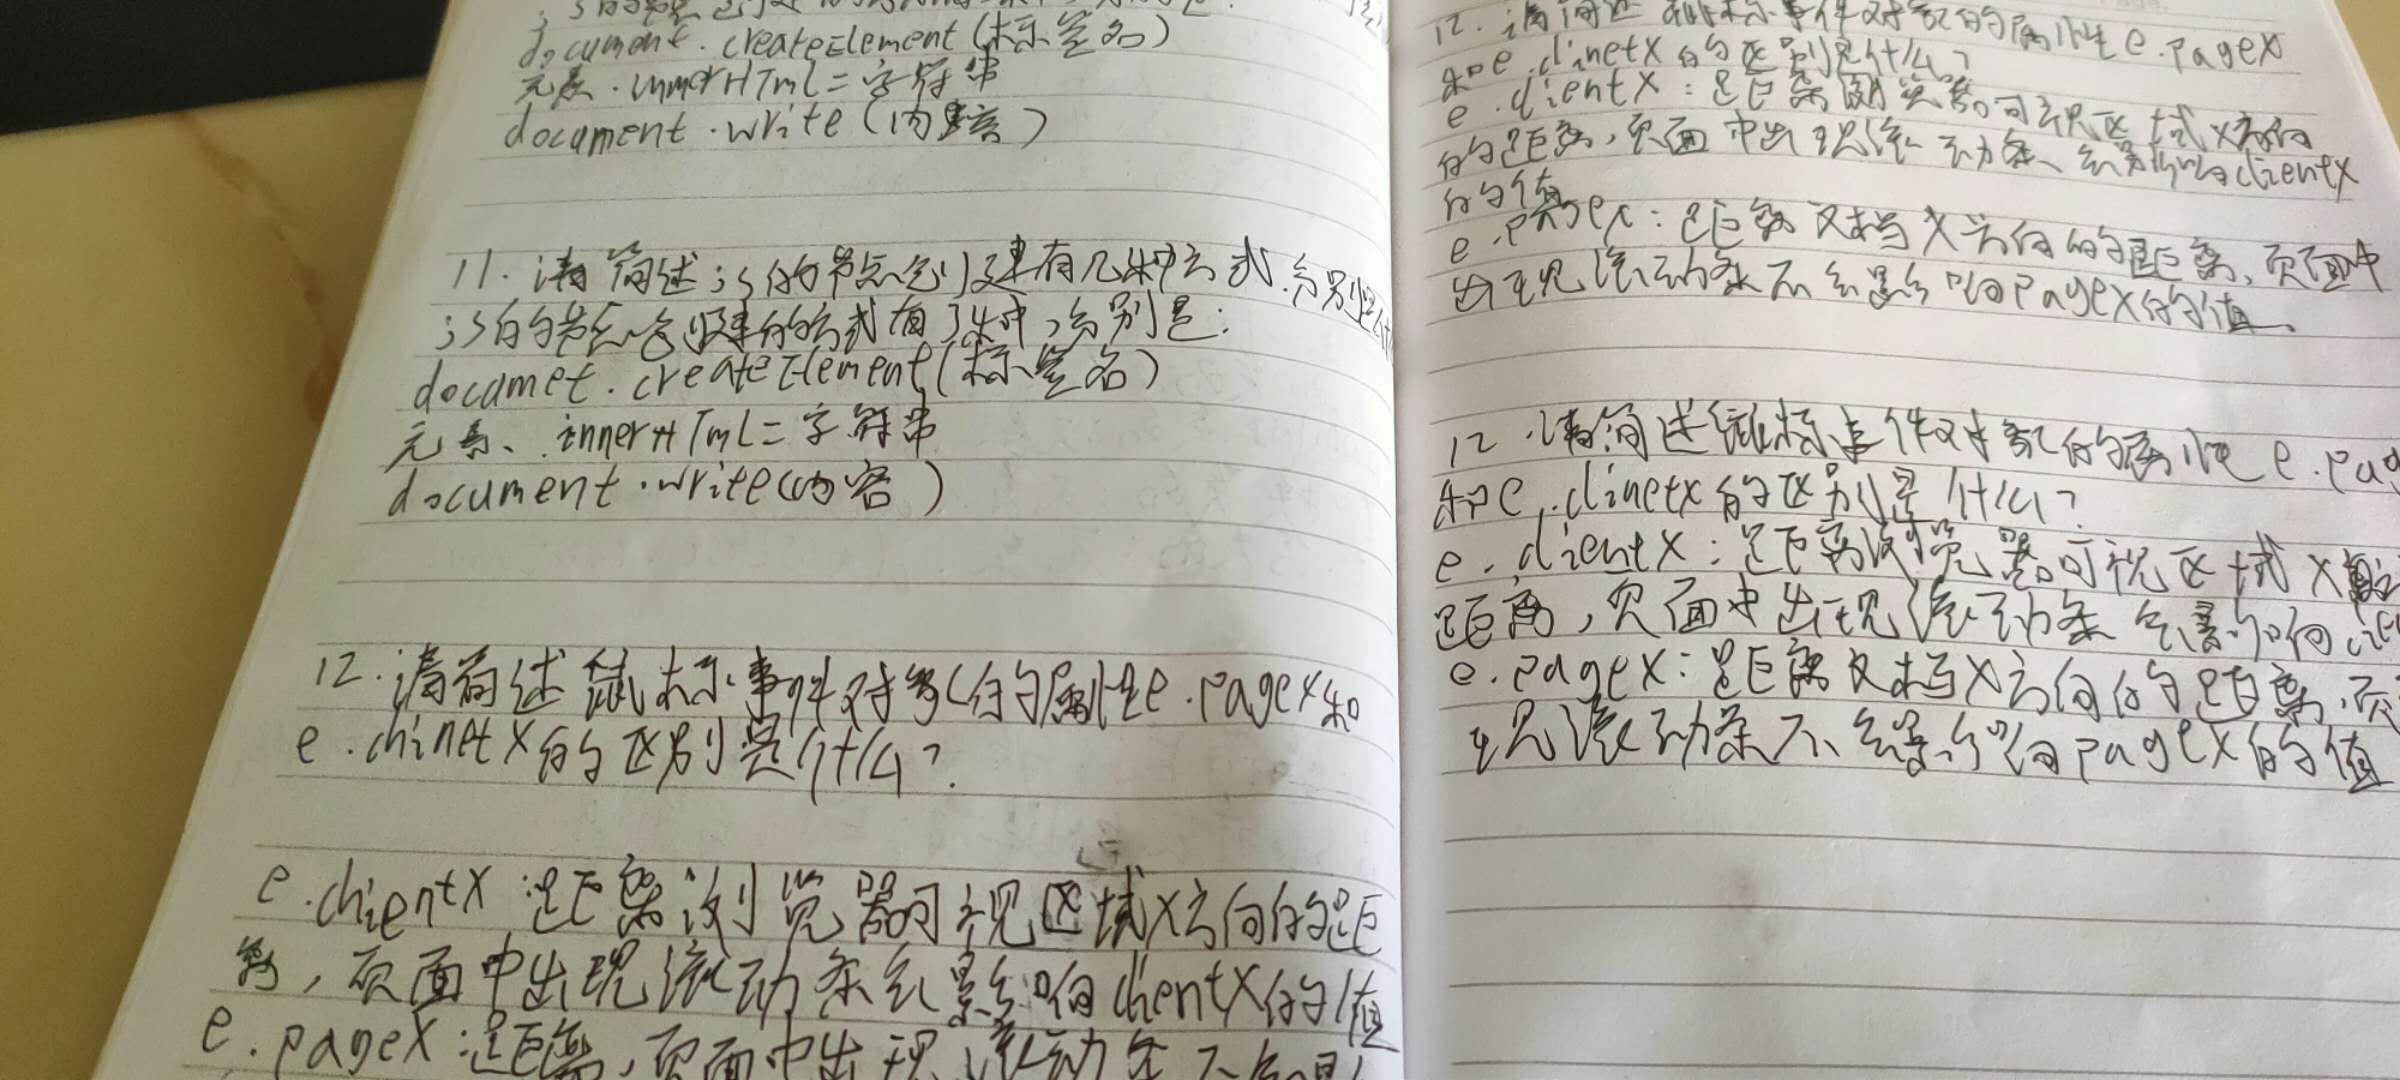 document.createElement(标签名)
元素.innerHTml=字符串
document.write(内容)
11.请简述js的节点创建有几种方式.分别是什
js的节点创建的方式有3种,分别是:
documet.createElement(标签名)
元素、.innerHTml=字符串
document.write(内容)
12.请简述鼠标事件对象的属性e.pagex和
e.chinetX的区别是什么?
e.chientX:距离浏览器可视区域X方向的距
离,页面中出现滚动条会影响chentX的值
e.pageX:距离,页面中出现滚动条不会
12.请简述鼠标事件对象的属性e.pageX
和e.clinetX的区别是什么?
e.clientX:距离浏览器可视区域X方向
的距离,页面中出现滚动条、会影响clientX
的值
e.pagex:距离文档X方向的距离,页面中
出现滚动条不会影响pageX的值、
12.请简述鼠标事件对象的属性e.pag
和e.clinetx的区别是什么?
e.clientX:距离浏览器可视区域X
距离,页面中出现滚动条会影响
e.pageX:距离文档X方向的距离,页
现滚动条不会影响pageX的值